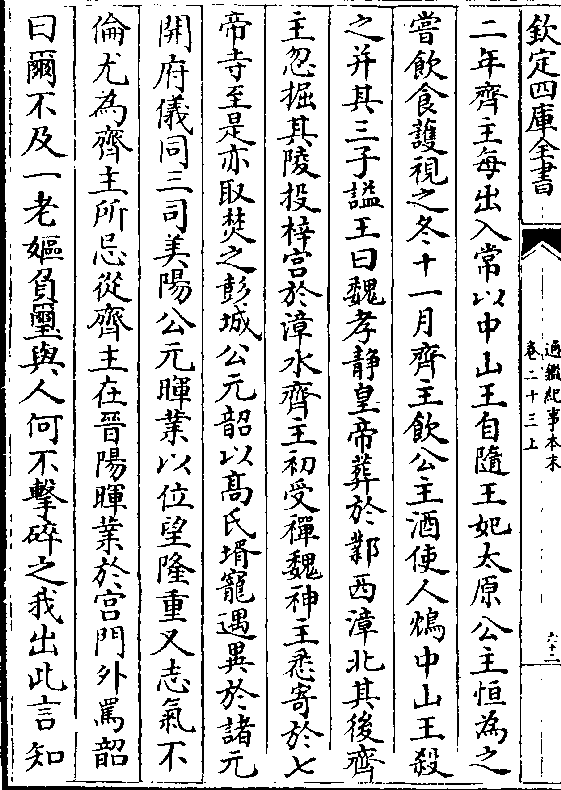 欽定四庫全書
通鑑紀事本末
卷二十三上
六十二
二年齊主每出入常以中山王自隨王妃太原公主恒為之
嘗飲食護視之冬十一月齊主飲公主酒使人鴆中山王殺
之并其三子諡王曰魏孝静皇帝葬於鄴西漳北其後齊
主忽掘其陵投梓宫於漳水齊主初受禪魏神主悉寄於七
帝寺至是亦取焚之彭城公元韶以髙氏壻寵遇異於諸元
開府儀同三司美陽公元暉業以位望隆重又志氣不
倫尤為齊主所忌從齊主在晉陽暉業於宫門外罵韶
曰爾不及一老嫗負璽與人何不擊碎之我出此言知